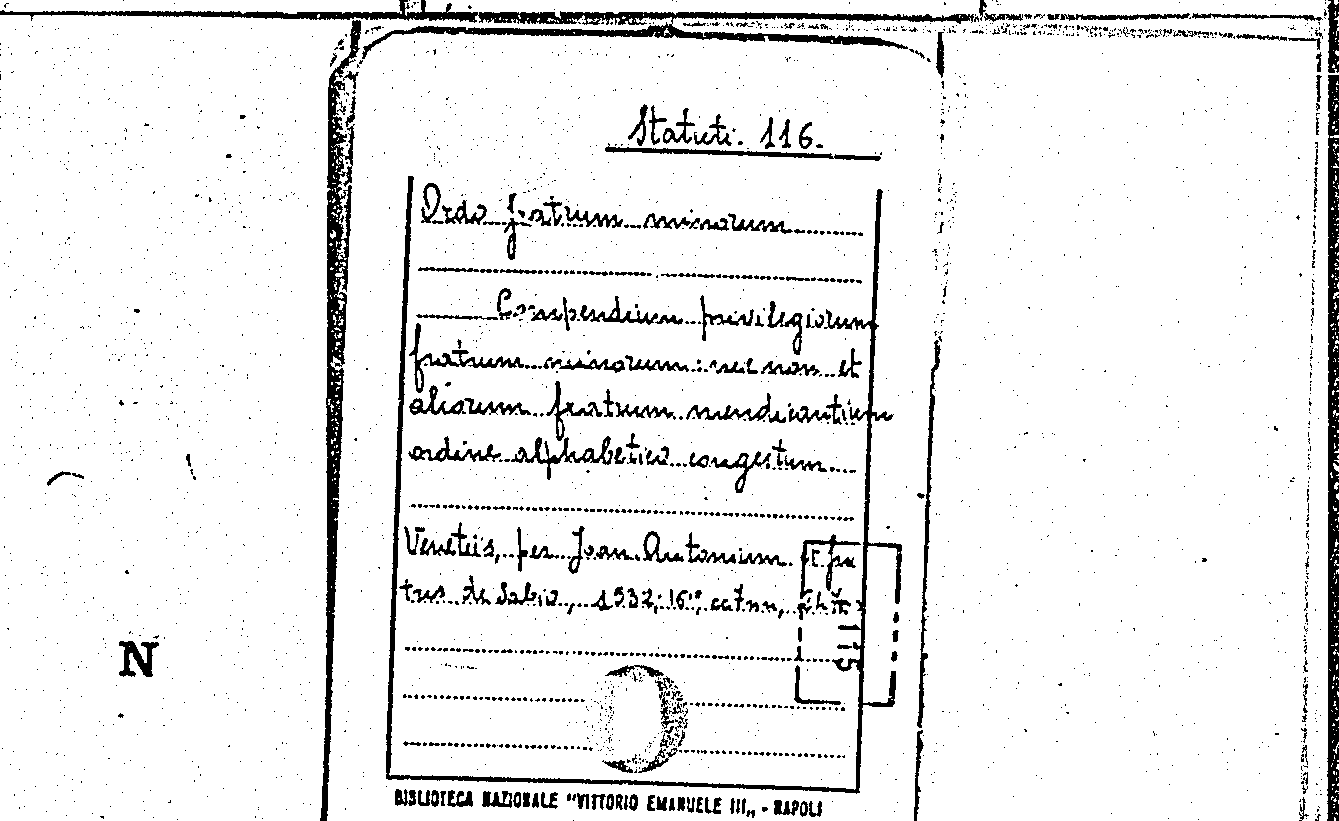 Statuti. 116.
Ordo fratrum minorum
Compendium privilegiorum
fratrum minorum: nec non et
aliorum fratrum mendicantium
ordine alphabetico congestum
Venetiis, per Joan. Antonium et fra
tres de Sabio, 1532, 16°,
115
N
BIBLIOTECA NAZIONALE "VITTORIO EMANUELE III„ - NAPOLI